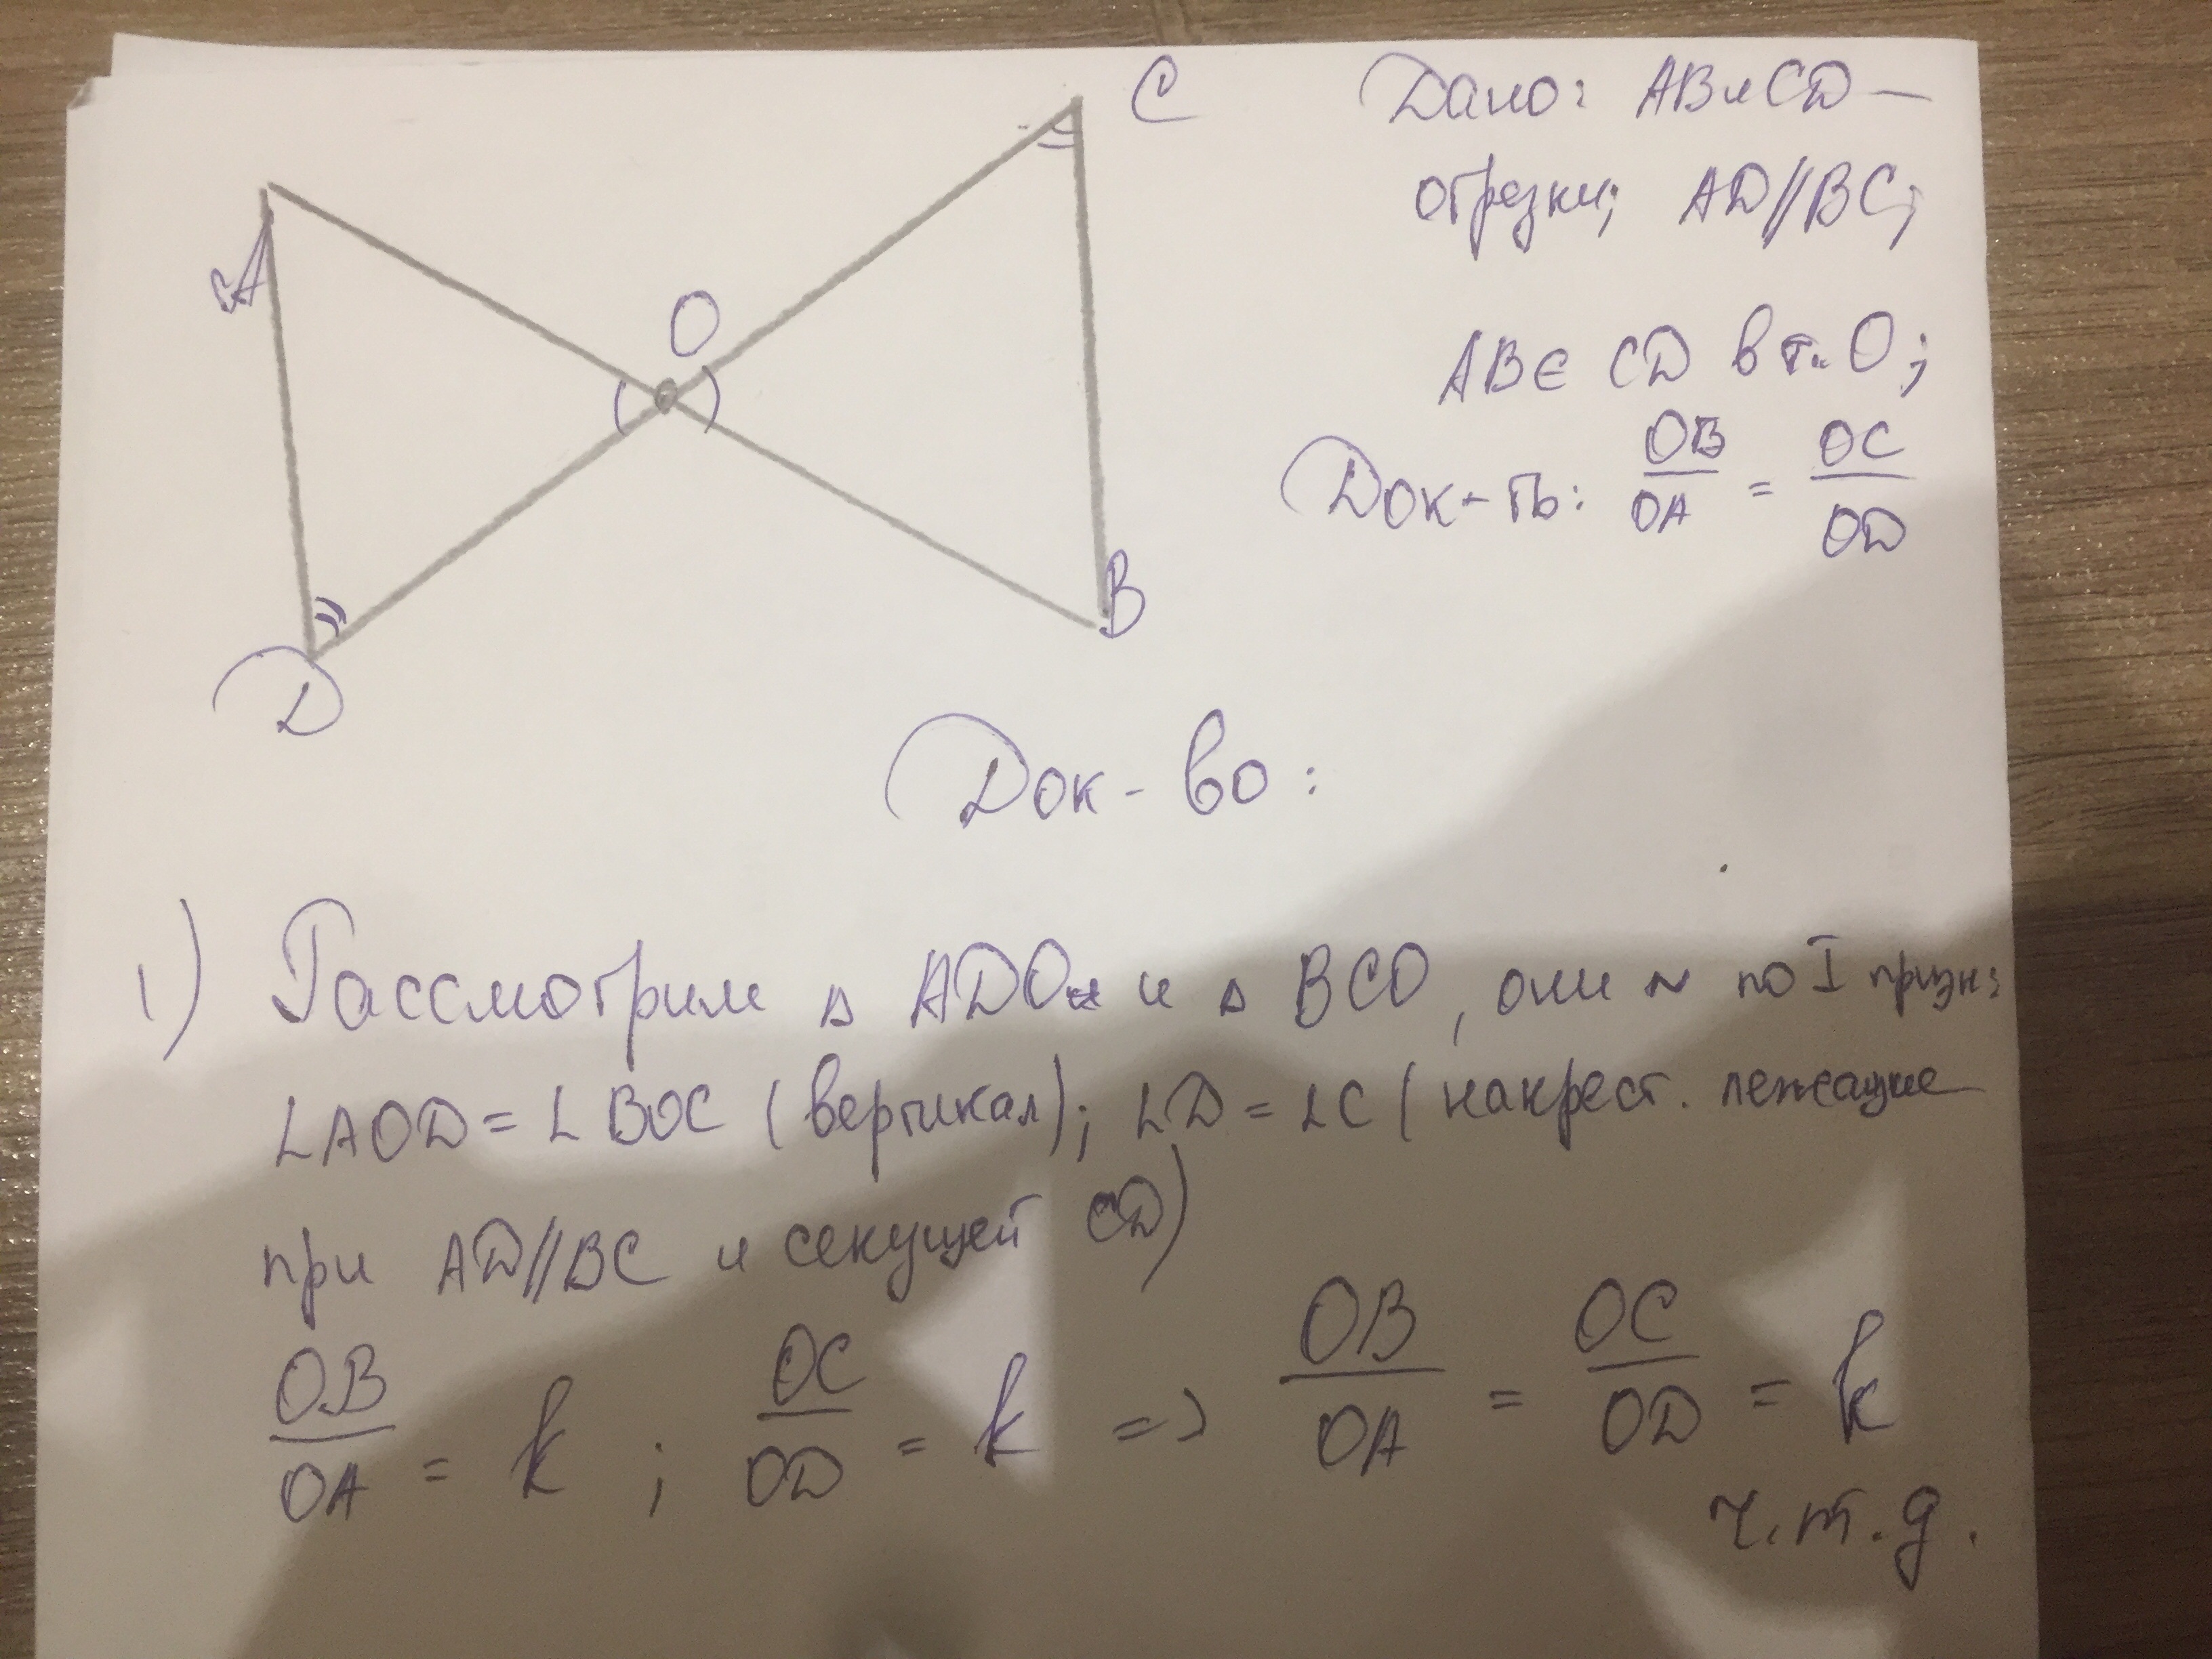 C
A
O
B
D
Дано: AB и CD –
отрезки; AD//BC;
AB ∈ CD в т. O;
Док-ть: OB/OA = OC/OD
Док-во:
1) Рассмотрим ▵ ADO и ▵ BCO, они ~ по I призн:
∠AOD = ∠BOC (вертикал); ∠D = ∠C (накрест. лежащие
при AD//BC и секущей CD)
OB/OA = k ; OC/OD = k => OB/OA = OC/OD = k
ч.т.д.